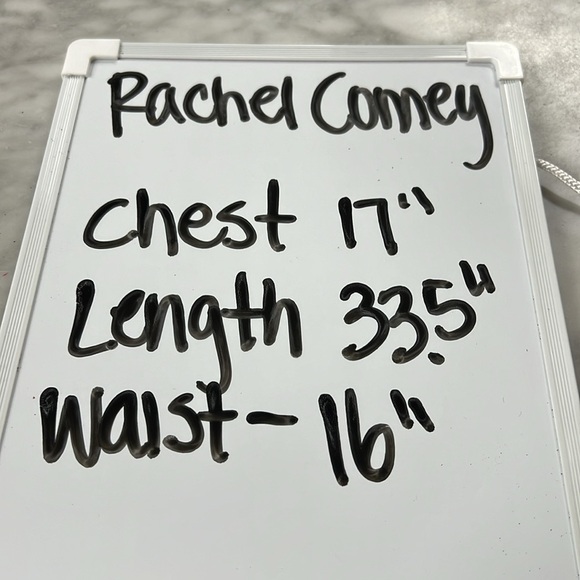 Rachel Comey
Chest 17"
Length 33.5"
Waist - 16"